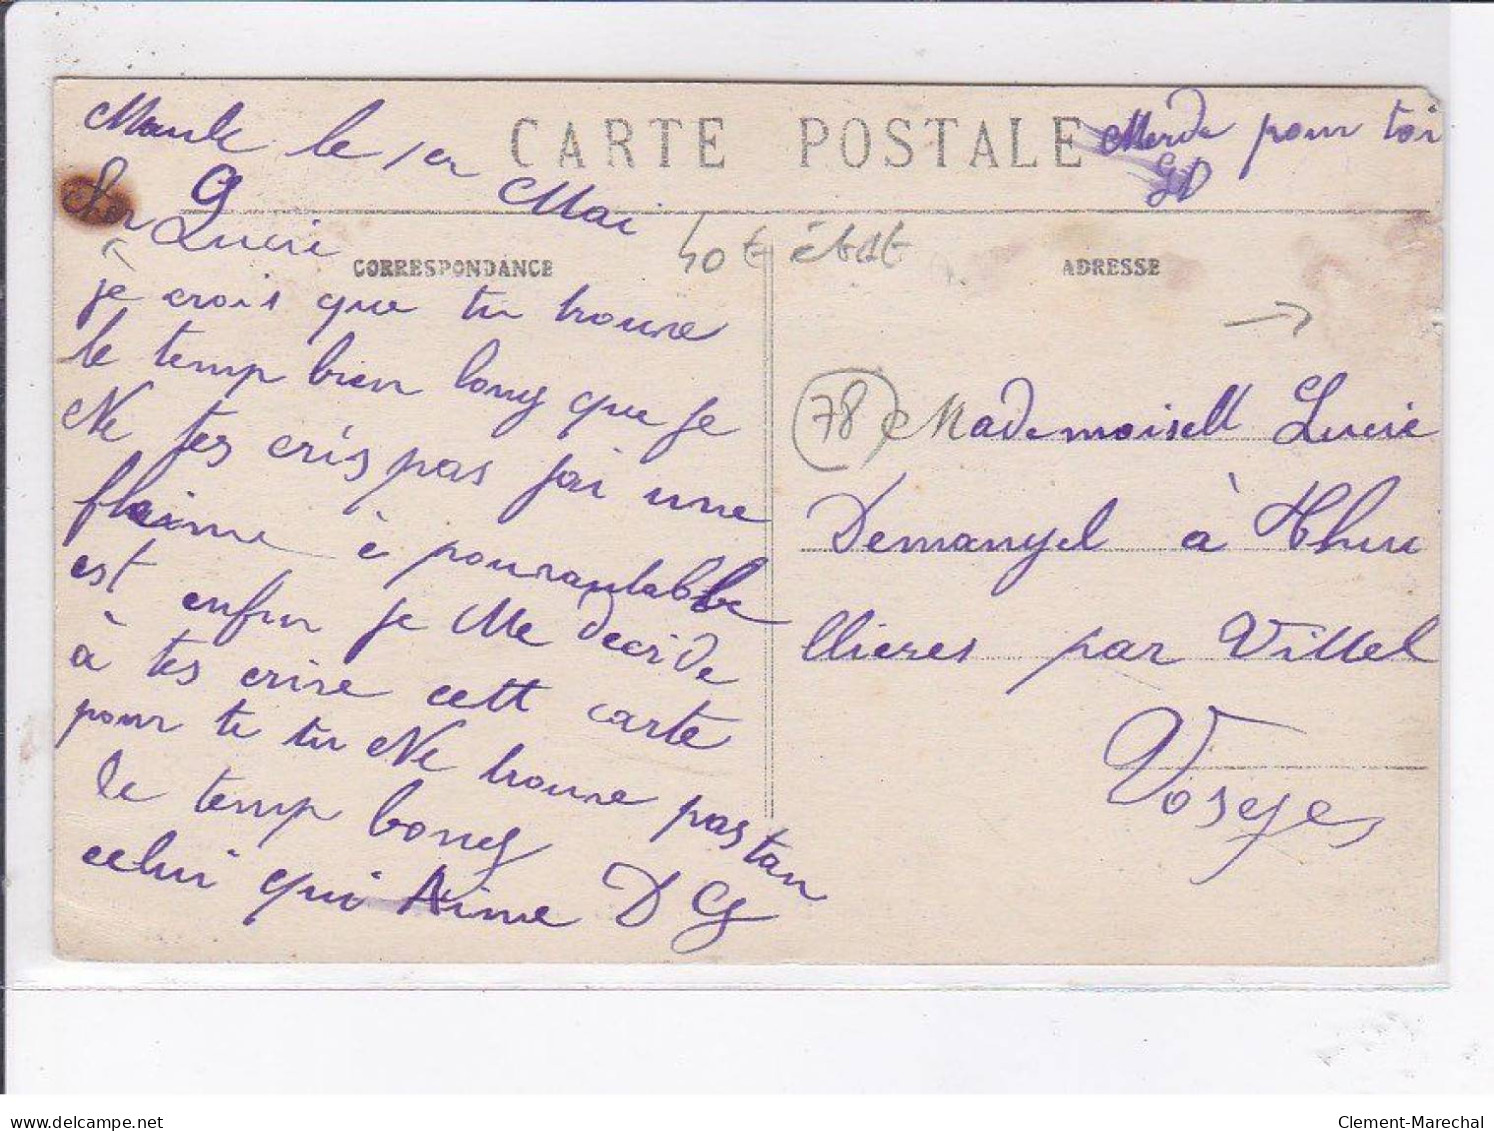 Maule le 1er Mai
CARTE POSTALE
Merde pour toi
GD
Cher Lucie
CORRESPONDANCE
40 € état
ADRESSE
je crois que tu trouve
le temp bien long que je
Ne tes cris pas jai une
flaime è pouvantabble
est enfin je Me decide
à tes crire cett carte
pour te tu Ne trouve pas tan
le temp long
celui qui Aime D G
78
Mademoisell Lucie
Demangel à Thu
llieres par Vittel
Vosges
delcampe.net
Clement-Marechal